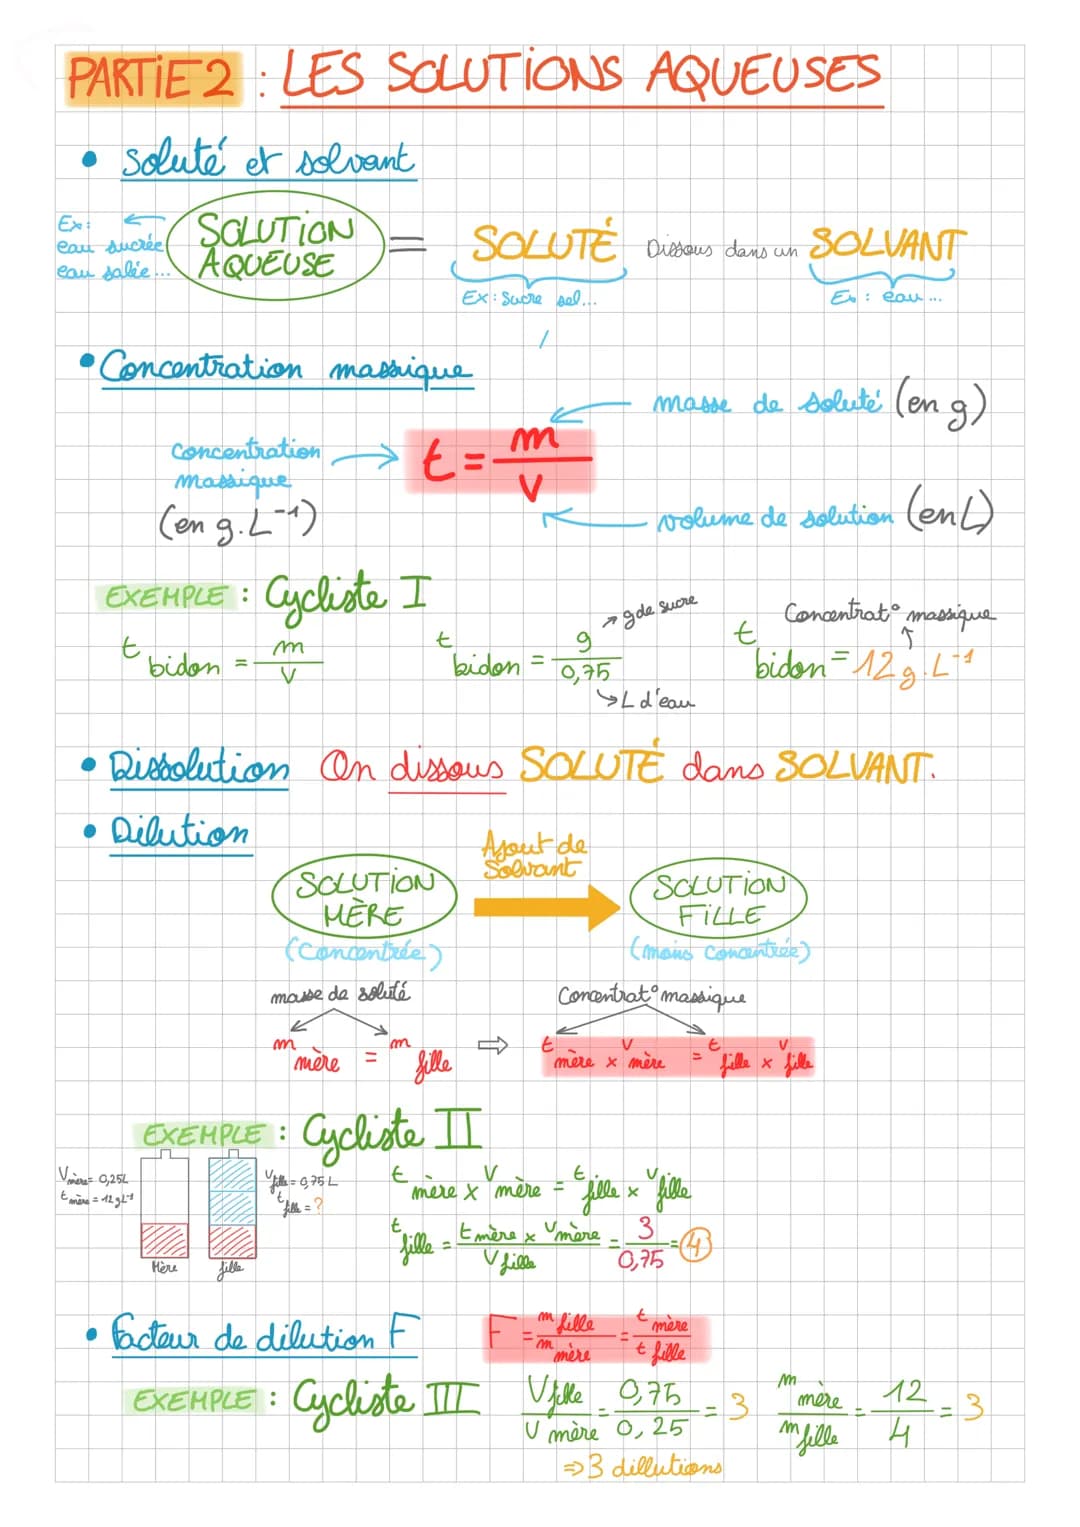 PARTIE 2 : LES SOLUTIONS AQUEUSES
• Soluté et solvant
Ex:
eau sucrée
eau salée...
SOLUTION
AQUEUSE
= SOLUTÉ Dissous dans un SOLVANT
Ex: Sucre sel...
Ex: eau...
• Concentration massique
masse de soluté (en g)
Concentration
massique
(en g.L⁻¹)
t = m/V
volume de solution (en L)
EXEMPLE : Cycliste I
t bidon = m/V
t bidon = 9/0,75
g de sucre
L d'eau
Concentrat° massique
t bidon = 12 g.L⁻¹
• Dissolution On dissous SOLUTÉ dans SOLVANT.
• Dilution
SOLUTION
MÈRE
(Concentrée)
Ajout de
Solvant
SOLUTION
FILLE
(moins concentrée)
masse de soluté
Concentrat° massique
m mère = m fille ⇒ t mère x V mère = t fille x V fille
EXEMPLE : Cycliste II
V mère = 0,25L
t mère = 12 gL⁻¹
Mère
fille
V fille = 0,75 L
t fille = ?
t mère x V mère = t fille x V fille
t fille = t mère x V mère / V fille = 3/0,75 = 4
• Facteur de dilution F
F = m fille / m mère = t mère / t fille
EXEMPLE : Cycliste III
V fille / V mère = 0,75 / 0,25 = 3
m mère / m fille = 12 / 4 = 3
⇒ 3 dillutions